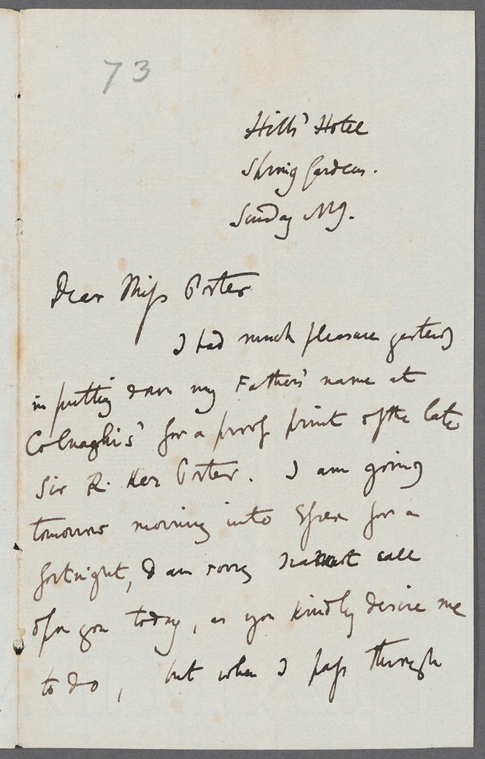 73
Hills' Hotel
Spring Gardens.
Sunday Mg.
Dear Miss Porter
I had much pleasure yesterday
in putting down my Father's name at
Colnaghis' for a proof print of the late
Sir R. Ker Porter. I am going
tomorrow morning into Essex for a
fortnight, & am sorry I cannot call
upon you today, as you kindly desire me
to do, but when I pass through